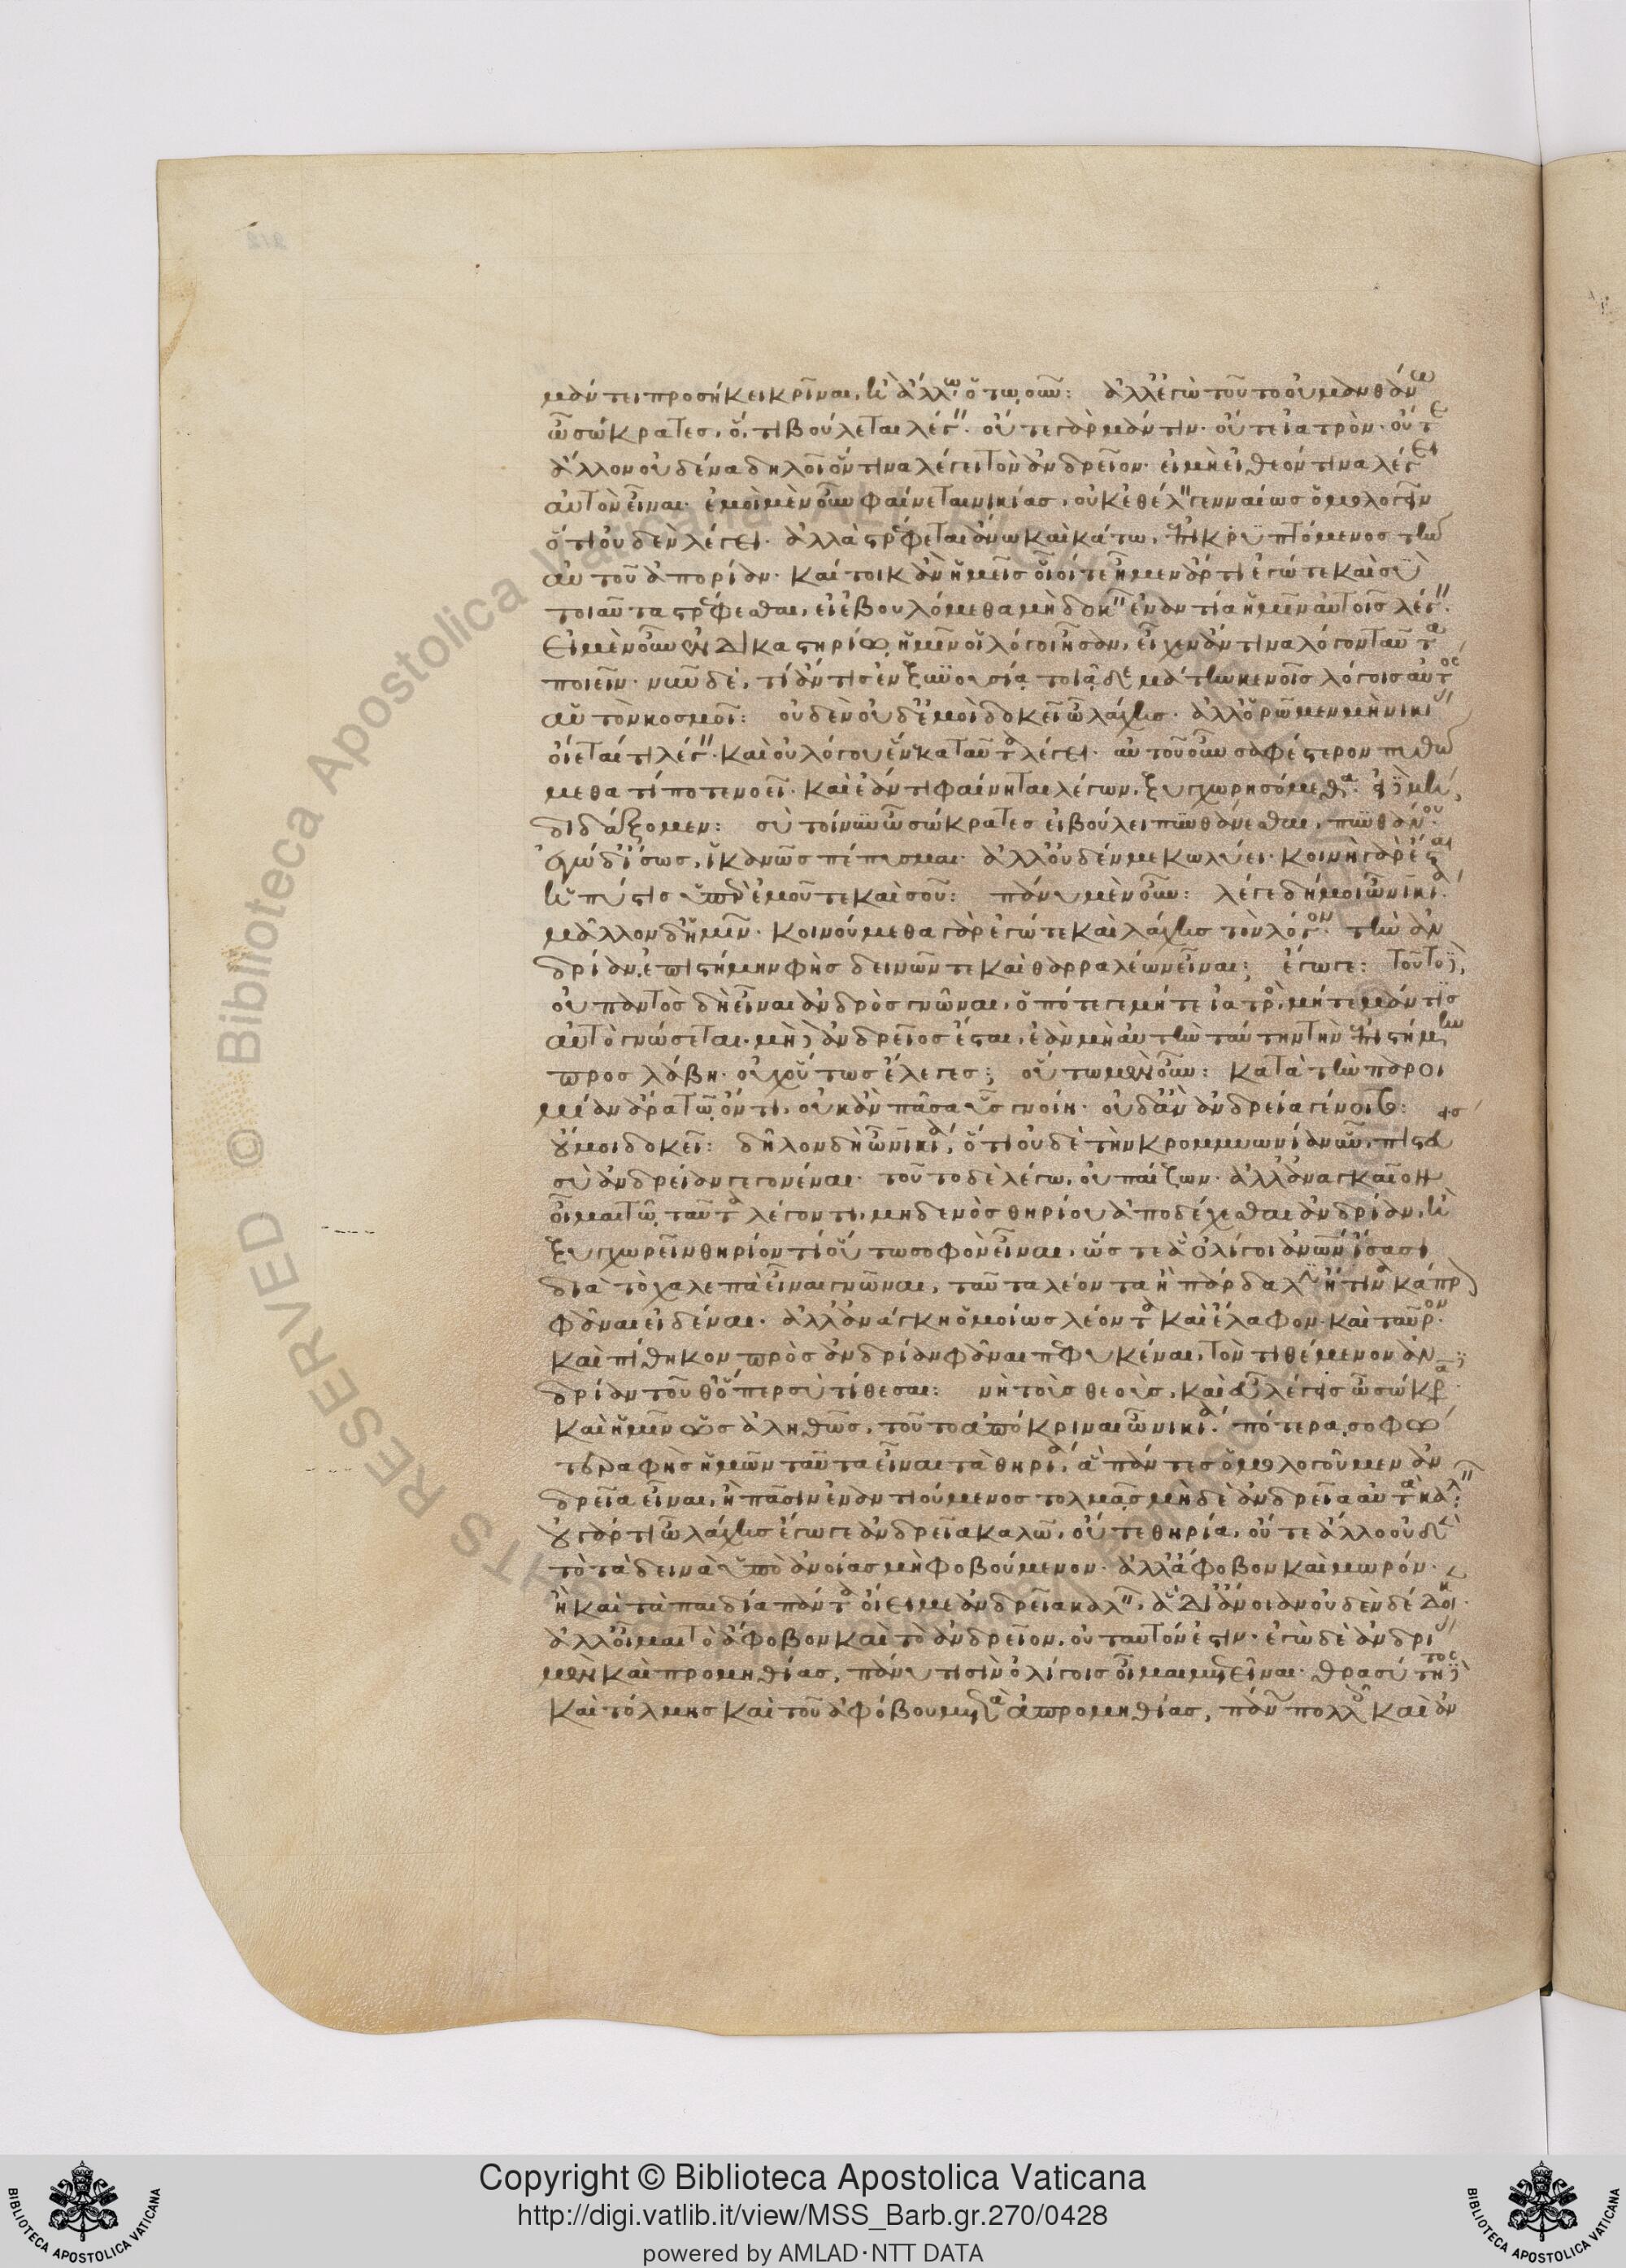 μάντει προσήκει κρῖναι, ἢ ἄλλῳ ὅτῳοῦν: ἀλλ' ἐγὼ τοῦτο οὐ μανθάνω
ὦ σώκρατες, ὅ, τι βούλεται λέγειν. οὔτε γὰρ μάντιν. οὔτε ἰατρὸν. οὔτε
ἄλλον οὐδένα δηλοῖ ὅντινα λέγει τὸν ἀνδρεῖον. εἰ μὴ εἰ θεόν τινα λέγει
αὐτὸν εἶναι. ἐμοὶ μὲν οὖν φαίνεται νικίας, οὐκ ἐθέλειν γενναίως ὁμολογεῖν
ὅτι οὐδὲν λέγει. ἀλλὰ στρέφεται ἄνω καὶ κάτω, ἐπικρυπτόμενος τὴν
αὑτοῦ ἀπορίαν. καίτοι κἂν ἡμεῖς οἷοί τε ἦμεν ἄρτι ἐγώ τε καὶ σὺ
τοιαῦτα στρέφεσθαι, εἰ ἐβουλόμεθα μὴ δοκεῖν ἐναντία ἡμῖν αὐτοῖς λέγειν.
εἰ μὲν οὖν ἐν δικαστηρίῳ ἡμῖν οἱ λόγοι ἦσαν, εἶχεν ἄν τινα λόγον ταῦτα
ποιεῖν. νῦν δὲ, τί ἄν τις ἐν ξυνουσίᾳ τοιᾷδε μάτην κενοῖς λόγοις αὐτὸς
αὑτὸν κοσμοῖ: οὐδὲν οὐδ' ἐμοὶ δοκεῖ ὦ λάχης. ἀλλ' ὁρῶμεν μὴ νικίας
οἴεταί τι λέγειν. καὶ οὐ λόγου ἕνεκα ταῦτα λέγει. αὐτοῦ οὖν σαφέστερον πυθώ
μεθα τί ποτε νοεῖ. καὶ ἐάν τι φαίνηται λέγων, ξυγχωρησόμεθα. εἰ δὲ μὴ,
διδάξομεν: σὺ τοίνυν ὦ σώκρατες εἰ βούλει πυνθάνεσθαι, πυνθάνου.
ἐγὼ δ' ἴσως, ἱκανῶς πέπυσμαι. ἀλλ' οὐδέν με κωλύει. κοινὴ γὰρ ἔσται
ἡ πύστις ὑπὲρ ἐμοῦ τε καὶ σοῦ: πάνυ μὲν οὖν: λέγε δή μοι ὦ νικία.
μᾶλλον δ' ἡμῖν. κοινούμεθα γὰρ ἐγώ τε καὶ λάχης τὸν λόγον. τὴν ἀν
δρίαν, ἐπιστήμην φῂς δεινῶν τε καὶ θαρραλέων εἶναι; ἔγωγε: τοῦτο δὲ,
οὐ παντὸς δὴ εἶναι ἀνδρὸς γνῶναι, ὁπότε γε μήτε ἰατρὸς, μήτε μάντις
αὐτὸ γνώσεται. μὴ δὲ ἀνδρεῖος ἔσται, ἐὰν μὴ αὐτὴν ταύτην τὴν ἐπιστήμην
προσλάβῃ. οὐχ οὕτως ἔλεγες; οὕτω μὲν οὖν: κατὰ τὴν παροι
μίαν ἄρα τῷ ὄντι, οὐκ ἂν πᾶσα ὗς γνοίη. οὐδ' ἂν ἀνδρεία γένοιτο:
οὔ μοι δοκεῖ: δῆλον δὴ ὦ νικία, ὅτι οὐδὲ τὴν κρομμυωνίαν ὗν, πιστεύεις
σὺ ἀνδρείαν γεγονέναι. τοῦτο δὲ λέγω, οὐ παίζων. ἀλλ' ἀναγκαῖον
οἶμαι τῷ ταῦτα λέγοντι, μηδενὸς θηρίου ἀποδέχεσθαι ἀνδρίαν, ἢ
ξυγχωρεῖν θηρίον τι οὕτω σοφὸν εἶναι, ὥστε ἃ ὀλίγοι ἀνθρώπων ἴσασι
διὰ τὸ χαλεπὰ εἶναι γνῶναι, ταῦτα λέοντα ἢ πάρδαλιν ἤ τινα κάπρον
φάναι εἰδέναι. ἀλλ' ἀνάγκη ὁμοίως λέοντα καὶ ἔλαφον. καὶ ταῦρον.
καὶ πίθηκον, πρὸς ἀνδρίαν φάναι πεφυκέναι, τὸν τιθέμενον ἀν
δρίαν τοῦθ' ὅπερ σὺ τίθεσαι: νὴ τοὺς θεοὺς, καὶ εὖ λέγεις ὦ σώκρατες.
καὶ ἡμῖν ὡς ἀληθῶς, τοῦτο ἀπόκριναι ὦ νικία. πότερα, σοφώ
τερα φῂς ἡμῶν ταῦτα εἶναι τὰ θηρία, ἃ πάντες ὁμολογοῦμεν ἀν
δρεῖα εἶναι, ἢ πᾶσιν ἐναντιούμενος τολμᾷς μὴδὲ ἀνδρεῖα αὐτὰ καλεῖν:
οὐ γάρ τι ὦ λάχης ἔγωγε ἀνδρεῖα καλῶ, οὔτε θηρία, οὔτε ἄλλο οὐδὲν
τὸ τὰ δεινὰ ὑπὸ ἀνοίας μὴ φοβούμενον. ἀλλ' ἄφοβον καὶ μωρόν.
ἢ καὶ τὰ παιδία πάντα οἴει με ἀνδρεῖα καλεῖν, ἃ δι' ἄνοιαν οὐδὲν δέδοικεν.
ἀλλ' οἶμαι τὸ ἄφοβον καὶ τὸ ἀνδρεῖον, οὐ ταυτόν ἐστιν. ἐγὼ δὲ ἀνδρίας
μὲν καὶ προμηθίας, πάνυ τισὶν ὀλίγοις οἶμαι μετεῖναι. θρασύτητος δὲ
καὶ τόλμης καὶ τοῦ ἀφόβου μετὰ ἀπρομηθίας, πάνυ πολλοῖς καὶ ἀν